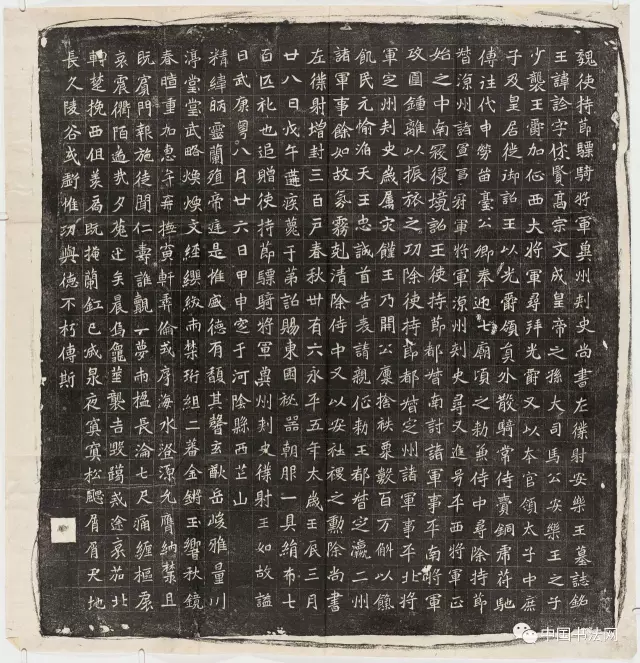 魏使持節驃騎將軍冀州刺史尚書左僕射安樂王墓誌銘
王諱詮字休賢高宗文成皇帝之孫大司馬公安樂王之子
少襲王爵加征西大將軍尋拜光爵又以本官領太子中庶
子及皇居徙御詔王以光爵領員外散騎常侍賚銅虎符馳
傳往代申勞留臺公卿奉迎七廟頃之勑兼侍中尋除持節
督涼州諸軍事冠軍將軍涼州刺史尋又進号平西將軍正
始之中南寇侵境詔王使持節都督南討諸軍事平南將軍
攻圍鍾離以振旅之功除使持節都督定州諸軍事平北將
軍定州刺史歲属灾饉王乃開公廩捨秩粟數百万斛以餼
飢民元愉滔天王忠誠首告表請親征勑王都督定瀛二州
諸軍事餘如故氛霧剋清除侍中又以安社稷之勳除尚書
左僕射增封三百戶春秋卅有六永平五年太歲壬辰三月
廿八日戊午遘疾薨于第詔賜東園秘器朝服一具絹布七
百匹礼也追贈使持節驃騎將軍冀州刺史僕射王如故謚
日武康粵八月廿六日甲申窆于河陰縣西芒山
精緯昞靈蘭殖帝庭是惟盛德有馥其聲玄猷岳峻雅量川
渟堂堂武略煥煥文經纓紱兩禁珩組二蕃金鏘玉響秋鏡
春暄重加惠弁再撫寅軒彞倫或序海水澄源允膺納禁且
既賓門報施徒聞仁壽誰覿一夢兩楹長淪七尺痛纏樞扆
哀震衢陌過哉夕菟迁矣晨烏龜筮襲吉毀躅戒途哀茄北
轉楚挽西徂羨扃既掩蘭釭已戚泉夜冥寞松颸屑屑天地
長久陵谷或虧惟功與德不朽傳斯
中国书法网